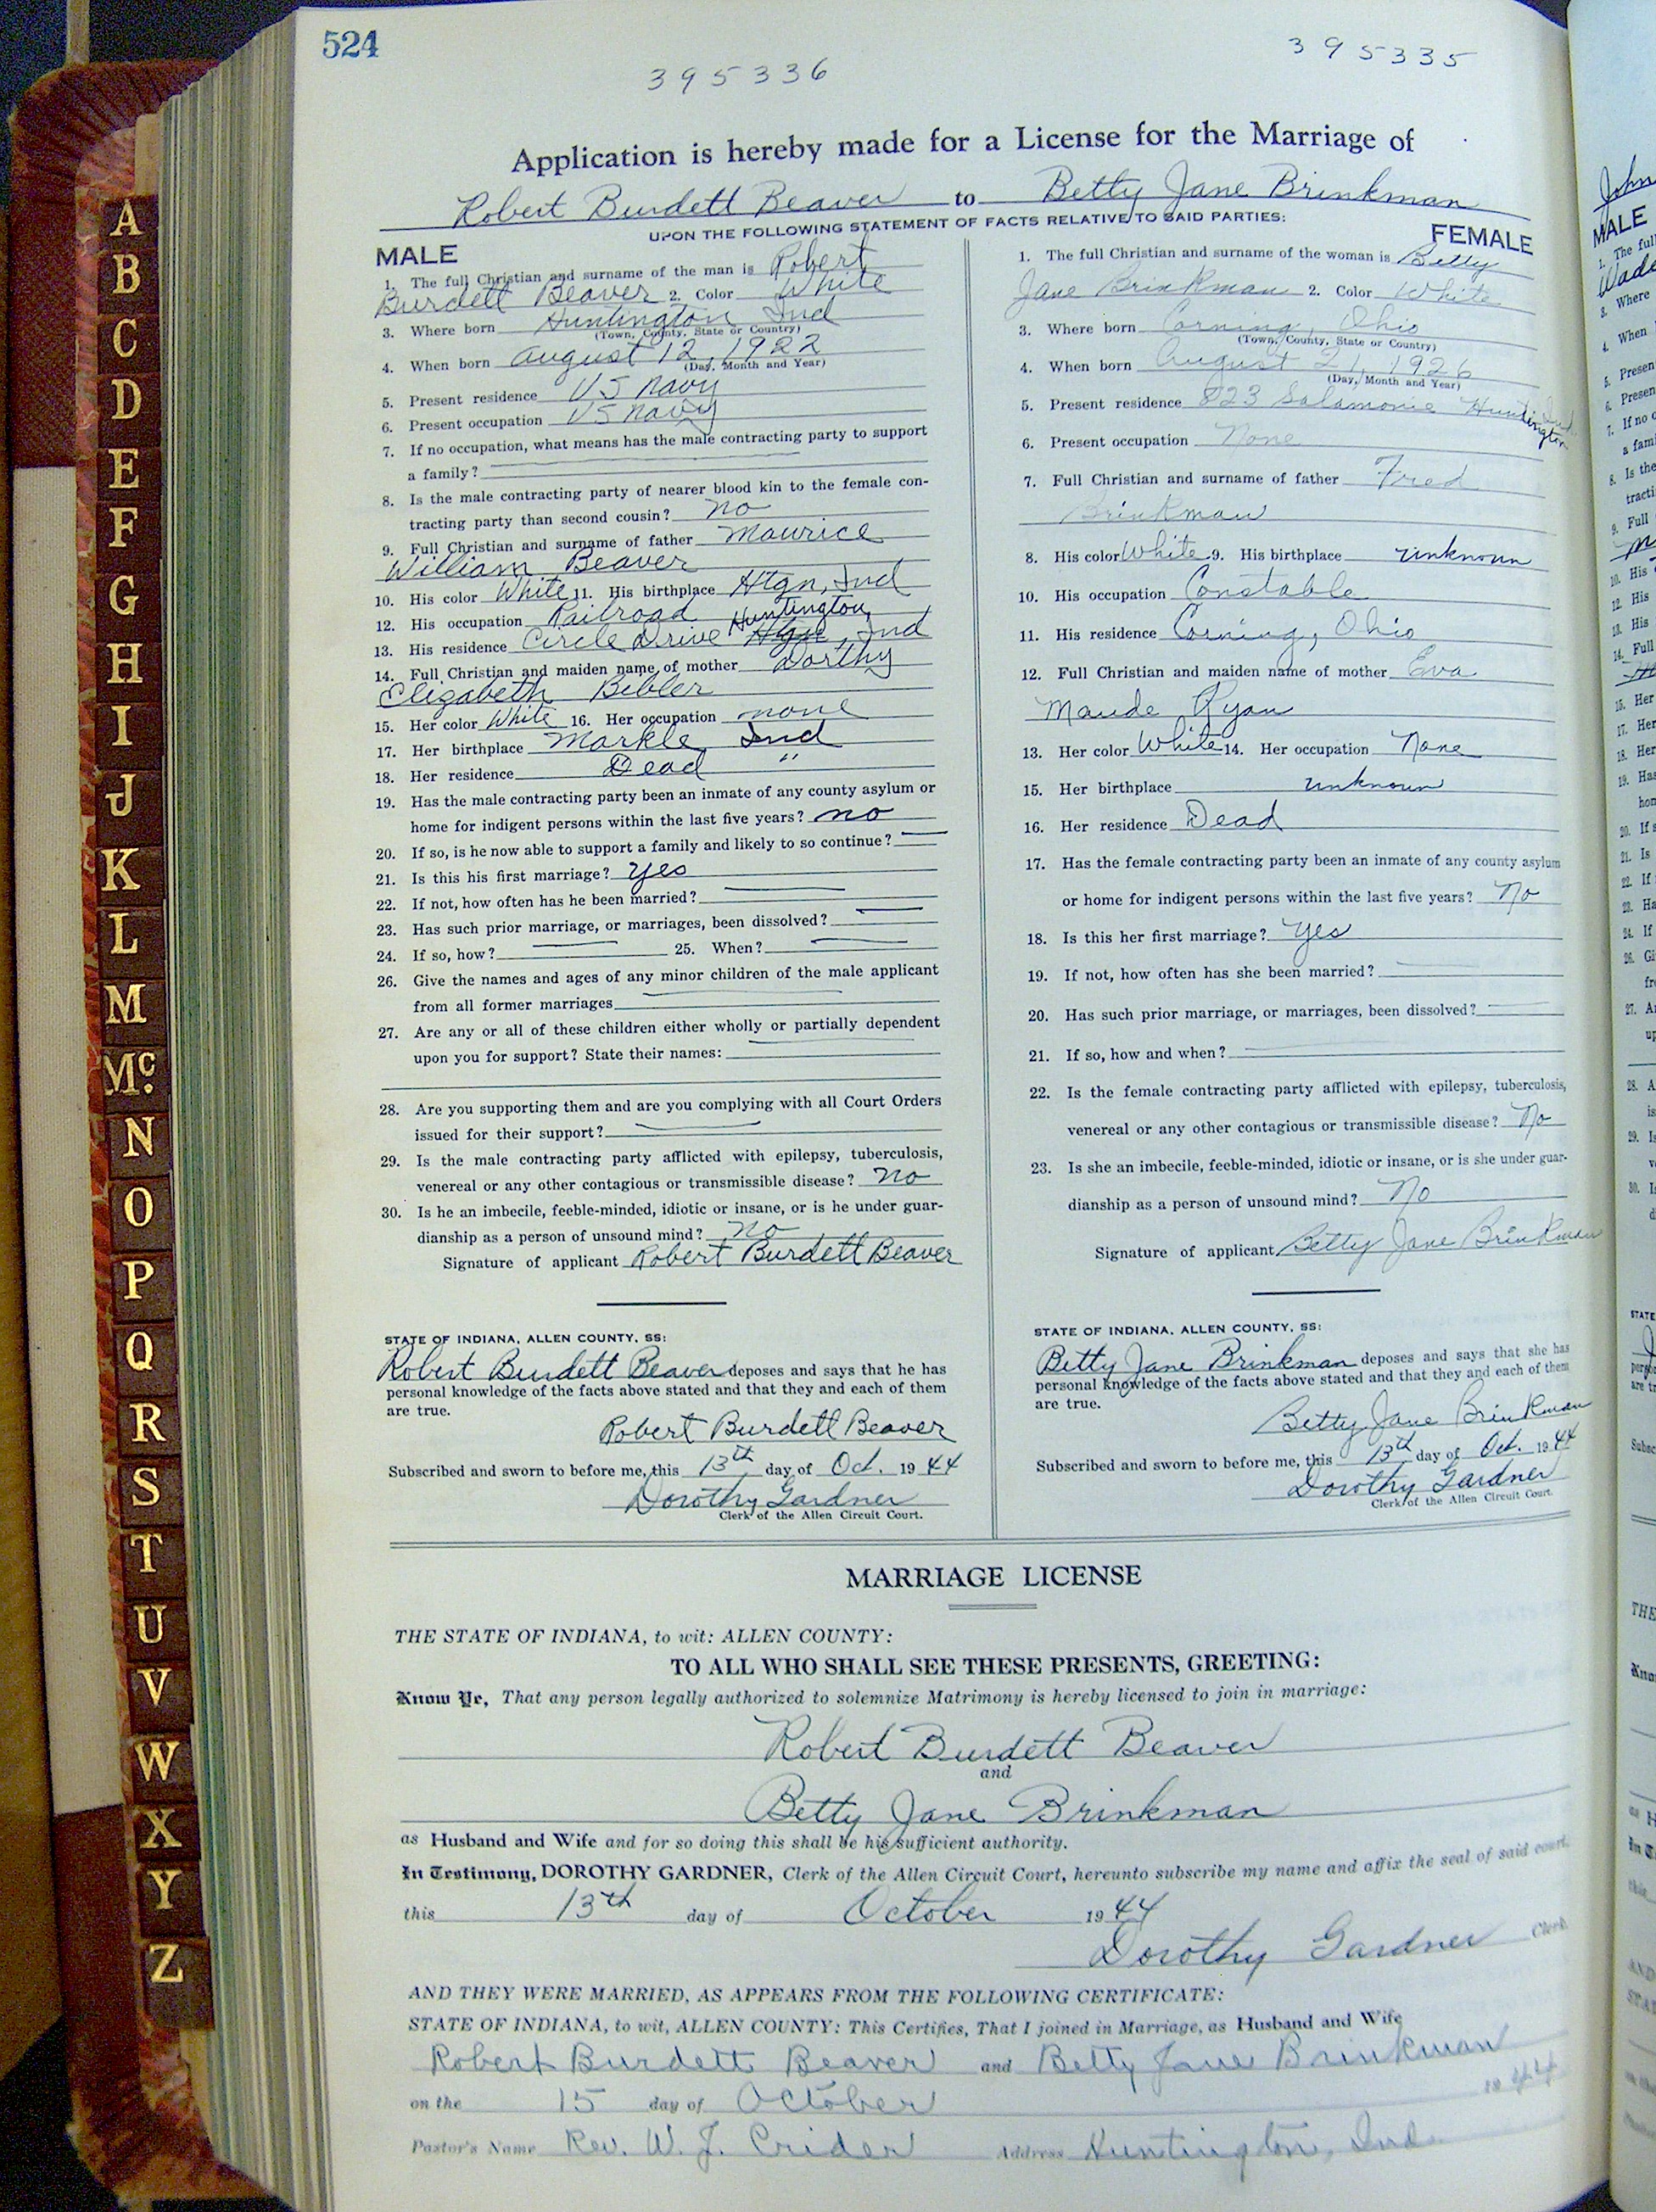 524
395336
395335
Application is hereby made for a License for the Marriage of
Robert Burdett Beaver to Betty Jane Brinkman
UPON THE FOLLOWING STATEMENT OF FACTS RELATIVE TO SAID PARTIES:
MALE
1. The full Christian and surname of the man is Robert
Burdett Beaver 2. Color White
3. Where born Huntington Ind
(Town, County, State or Country)
4. When born August 12, 1922
(Day, Month and Year)
5. Present residence US Navy
6. Present occupation US Navy
7. If no occupation, what means has the male contracting party to support
a family?
8. Is the male contracting party of nearer blood kin to the female con-
tracting party than second cousin? no
9. Full Christian and surname of father Maurice
William Beaver
10. His color White 11. His birthplace Htgn, Ind
12. His occupation Railroad
13. His residence Circle Drive Huntington, Htgn, Ind
14. Full Christian and maiden name of mother Dorthy
Elizabeth Bibler
15. Her color White 16. Her occupation none
17. Her birthplace Markle Ind
18. Her residence Dead "
19. Has the male contracting party been an inmate of any county asylum or
home for indigent persons within the last five years? no
20. If so, is he now able to support a family and likely to so continue?
21. Is this his first marriage? yes
22. If not, how often has he been married?
23. Has such prior marriage, or marriages, been dissolved?
24. If so, how? 25. When?
26. Give the names and ages of any minor children of the male applicant
from all former marriages
27. Are any or all of these children either wholly or partially dependent
upon you for support? State their names:
28. Are you supporting them and are you complying with all Court Orders
issued for their support?
29. Is the male contracting party afflicted with epilepsy, tuberculosis,
venereal or any other contagious or transmissible disease? no
30. Is he an imbecile, feeble-minded, idiotic or insane, or is he under guar-
dianship as a person of unsound mind? no
Signature of applicant Robert Burdett Beaver
STATE OF INDIANA, ALLEN COUNTY, SS:
Robert Burdett Beaver deposes and says that he has
personal knowledge of the facts above stated and that they and each of them
are true.
Robert Burdett Beaver
Subscribed and sworn to before me, this 13th day of Oct. 1944
Dorothy Gardner
Clerk of the Allen Circuit Court.
FEMALE
1. The full Christian and surname of the woman is Betty
Jane Brinkman 2. Color White
3. Where born Corning, Ohio
(Town, County, State or Country)
4. When born August 21, 1926
(Day, Month and Year)
5. Present residence 823 Salamonie Huntington Ind.
6. Present occupation None
7. Full Christian and surname of father Fred
Brinkman
8. His color White 9. His birthplace unknown
10. His occupation Constable
11. His residence Corning, Ohio
12. Full Christian and maiden name of mother Eva
Maude Ryan
13. Her color White 14. Her occupation None
15. Her birthplace unknown
16. Her residence Dead
17. Has the female contracting party been an inmate of any county asylum
or home for indigent persons within the last five years? No
18. Is this her first marriage? Yes
19. If not, how often has she been married?
20. Has such prior marriage, or marriages, been dissolved?
21. If so, how and when?
22. Is the female contracting party afflicted with epilepsy, tuberculosis,
venereal or any other contagious or transmissible disease? No
23. Is she an imbecile, feeble-minded, idiotic or insane, or is she under guar-
dianship as a person of unsound mind? No
Signature of applicant Betty Jane Brinkman
STATE OF INDIANA, ALLEN COUNTY, SS:
Betty Jane Brinkman deposes and says that she has
personal knowledge of the facts above stated and that they and each of them
are true.
Betty Jane Brinkman
Subscribed and sworn to before me, this 13th day of Oct. 1944
Dorothy Gardner
Clerk of the Allen Circuit Court.
MARRIAGE LICENSE
THE STATE OF INDIANA, to wit: ALLEN COUNTY:
TO ALL WHO SHALL SEE THESE PRESENTS, GREETING:
Know Ye, That any person legally authorized to solemnize Matrimony is hereby licensed to join in marriage:
Robert Burdett Beaver
and
Betty Jane Brinkman
as Husband and Wife and for so doing this shall be his sufficient authority.
In Testimony, DOROTHY GARDNER, Clerk of the Allen Circuit Court, hereunto subscribe my name and affix the seal of said court,
this 13th day of October 1944
Dorothy Gardner Clerk
AND THEY WERE MARRIED, AS APPEARS FROM THE FOLLOWING CERTIFICATE:
STATE OF INDIANA, to wit, ALLEN COUNTY: This Certifies, That I joined in Marriage, as Husband and Wife
Robert Burdett Beaver and Betty Jane Brinkman
on the 15 day of October 1944
Pastor's Name Rev. W. J. Crider Address Huntington, Ind.
A
B
C
D
E
F
G
H
I
J
K
L
M
Mc.
N
O
P
Q
R
S
T
U
V
W
X
Y
Z
John
MALE
1. The full
Wade
3. Where
4. When
5. Presen
6. Presen
7. If no
a fam
8. Is the
tracti
9. Full
10. His
12. His
13. His
14. Full
15. Her
17. Her
18. Her